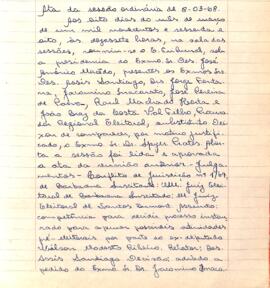 Ata da sessão ordinária de 8-03-68.
Aos oito dias do mês de março
de um mil novecentos e sessenta e
oito, às dezessete horas, na sala das
sessões, reuniu-se o E. Tribunal, sob
a presidência do Exmo Sr. Des. José
Antônio presentes os Exmos Srs
Des. Assis Santiago, Drs Jorge Fontana,
Jacomino Inacarato, José Pereira
de Paiva, Raul Machado Horta e
João Braz da Costa Val Filho, Procurador
Regional Eleitoral, substituto. Deixou
de comparecer, por motivo justificado,
o Exmo Sr. Dr.
a sessão foi lida e aprovada
a ata da reunião anterior - Julgamentos
- Conflito de Jurisdição nº
de Barbacena Suscitante: MM. Juiz Eleitoral
de Barbacena Suscitado: MM Juiz
Eleitoral de Santos Dumont. Assunto:
competência para decidir processo instaurado
para apurar possíveis atividades
eleitorais por parte do ex-deputado
Modesto Ribeiro. Relator: Des.
Assis Santiago Decisão: adiado a
pedido do Exmo Sr. Dr. Jacomino Inaca-